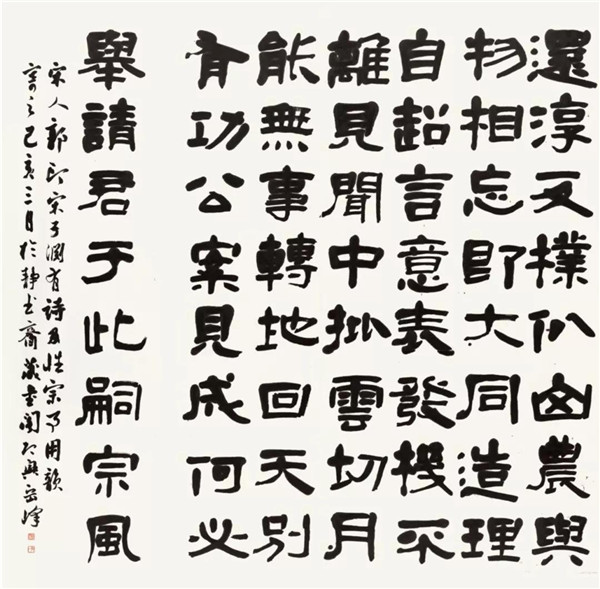 還淳反樸農與
物相忘即大同造理
自超言意表發機不
離見聞中批雲切月
能無事轉地回天別
有功公案見成何必
舉請君于此嗣宗風
宋人郭印宋子淵有詩及性宗事用韻
寄之己亥三月於靜齋岳峰